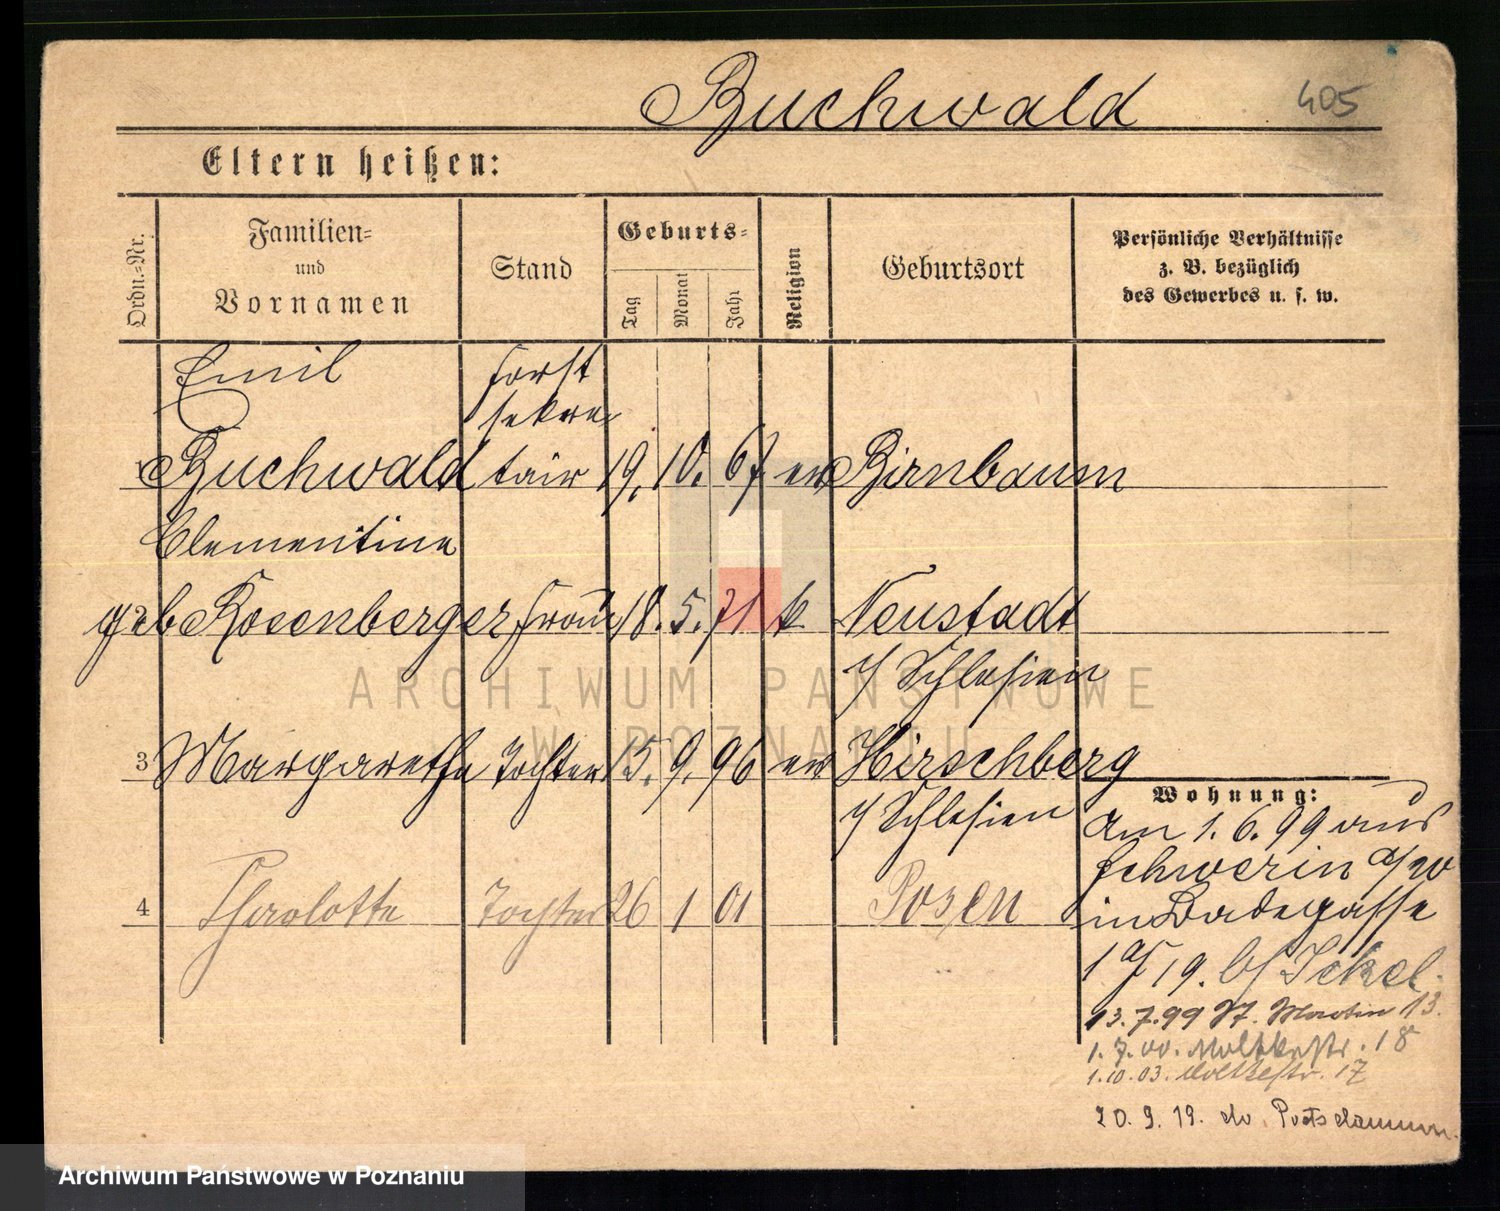 Buchwald
405
Eltern heißen:
Ordn.-Nr.
Familien-
und
Vornamen
Stand
Geburts-
Tag
Monat
Jahr
Religion
Geburtsort
Persönliche Verhältnisse
z. B. bezüglich
des Gewerbes u. s. w.
Emil Forst
sekre
1 Buchwald tair 19. 10. 67 ev Birnbaum
Clementine
2 geb Rosenberger Frau 18. 5. 71 k Neustadt
Schlesien
3 Margarethe Tochter 15. 9. 96 ev Hirschberg
Schlesien
4 Charlotte Tochter 26 1 01 Posen
Wohnung:
am 1. 6. 99 aus
Schwerin a/w
in Badegasse
19. b/ Jekel.
13. 7. 99 St. Martin 13.
1. 7. 00. Moltkestr. 18
1. 10. 03. Moltkestr. 17
20. 9. 19. Potsdam
ARCHIWUM PAŃSTWOWE
W POZNANIU
Archiwum Państwowe w Poznaniu